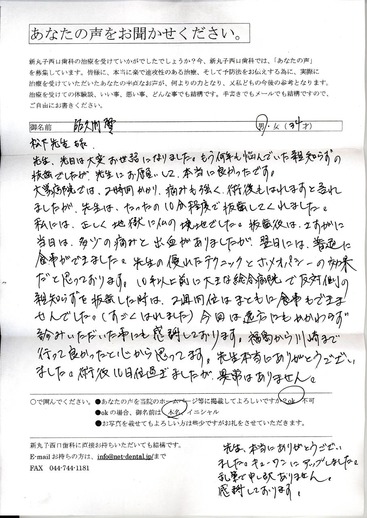 あなたの声をお聞かせください。
新丸子西口歯科の治療を受けていかがでしたでしょうか?今、新丸子西口歯科では、「あなたの声」
を募集しています。皆様に、本当に楽で速攻性のある治療、そして予防法をお伝えする為に、実際に
治療を受けていただいたあなたの率直なお声が、何よりの力となり、又私どもの今後の参考となります。
治療を受けての体験談、いい事、悪い事、どんな事でも結構です。手書きでもメールでも結構ですので、
ご自由にお書きください。
御名前 男・女(34才)
松下先生様
先生、先日は大変お世話になりました。もう何年も悩んでいた親知らずの
抜歯でしたが、先生にお願いして、本当に良かったです。
大学病院では、2時間かかり、痛みも強く、術後もはれますと言われ
ましたが、先生は、たったの10分程度で抜歯してくれました。
私には、正しく地獄に仏の境地でした。抜歯後は、さすがに
当日は、多少の痛みと出血がありましたが、翌日には、普通に
食事ができました。先生の優れたテクニックとホメオパシーの効果
だと思っております。10年以上前に大きな総合病院で反対側の
親知らずを抜歯した時は、2週間位はまともに食事もできま
せんでした。(すごくはれました)今回は遠方にもかかわらず
診みいただいた事にも感謝しております。福島から川崎まで
行って良かったと心から思ってます。先生本当にありがとうござい
ました。術後10日位過ぎましたが異常はありません。
○で囲んでください。 ●あなたの声を当院のホームページ等に掲載してよろしいですか?ok 不可
●okの場合、御名前は 本名 イニシャル
●お写真を載せてもよろしい方は些少ですがお礼をさせていただきます。
新丸子西口歯科に直接お持ちいただいても結構です。
E-mailお持ちの方は、info@net-dental.jp/まで
FAX 044-744-1181
先生、本当にありがとうござい
ました。
乱筆で申し訳ありません。
感謝しております。